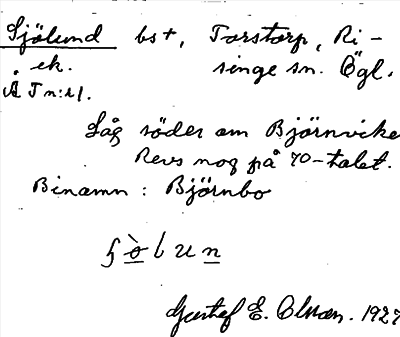 Sjölund bst, Torstorp, Ri-
ek. singe sn. Ögl.
Å Tn:s/.
Låg söder om Björnvike
Revs nog på 70-talet.
Binamn : Björnbo
Gustaf E. 1927